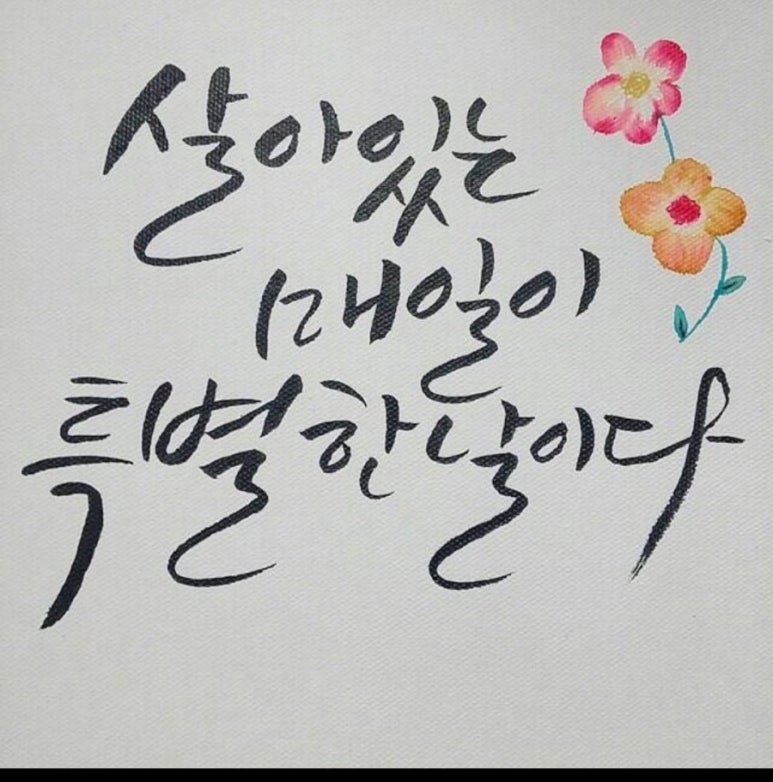 살아있는
매일이
특별한 날이다